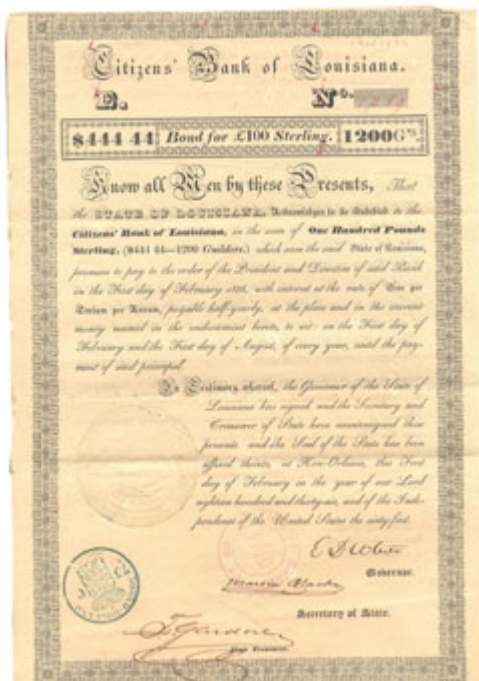 Citizens' Bank of Louisiana.
D. No.
$444 44 Bond for £100 Sterling. 1200 Grs.
Know all Men by these Presents, That
the STATE OF LOUISIANA, Acknowledges to be Indebted to the
Citizens' Bank of Louisiana, in the sum of One Hundred Pounds
Sterling, ($444 44—1200 Guilders,) which sum the said State of Louisiana,
promises to pay to the order of the President and Directors of said Bank
in the First day of February with interest at the rate of Five per
Centum per Annum, payable half yearly, at the place and in the current
money named in the endorsement hereto, to wit: on the First day of
February and the First day of August, of every year, until the pay-
ment of said principal.
In Testimony whereof, the Governor of the State of
Louisiana has signed and the Secretary and
Treasurer of State have countersigned these
presents and the Seal of the State has been
affixed thereto, at New-Orleans, this First
day of February in the year of our Lord
eighteen hundred and thirty-six, and of the Inde-
pendence of the United States the sixty-first.
E D White
Governor.
Secretary of State.
State Treasurer.